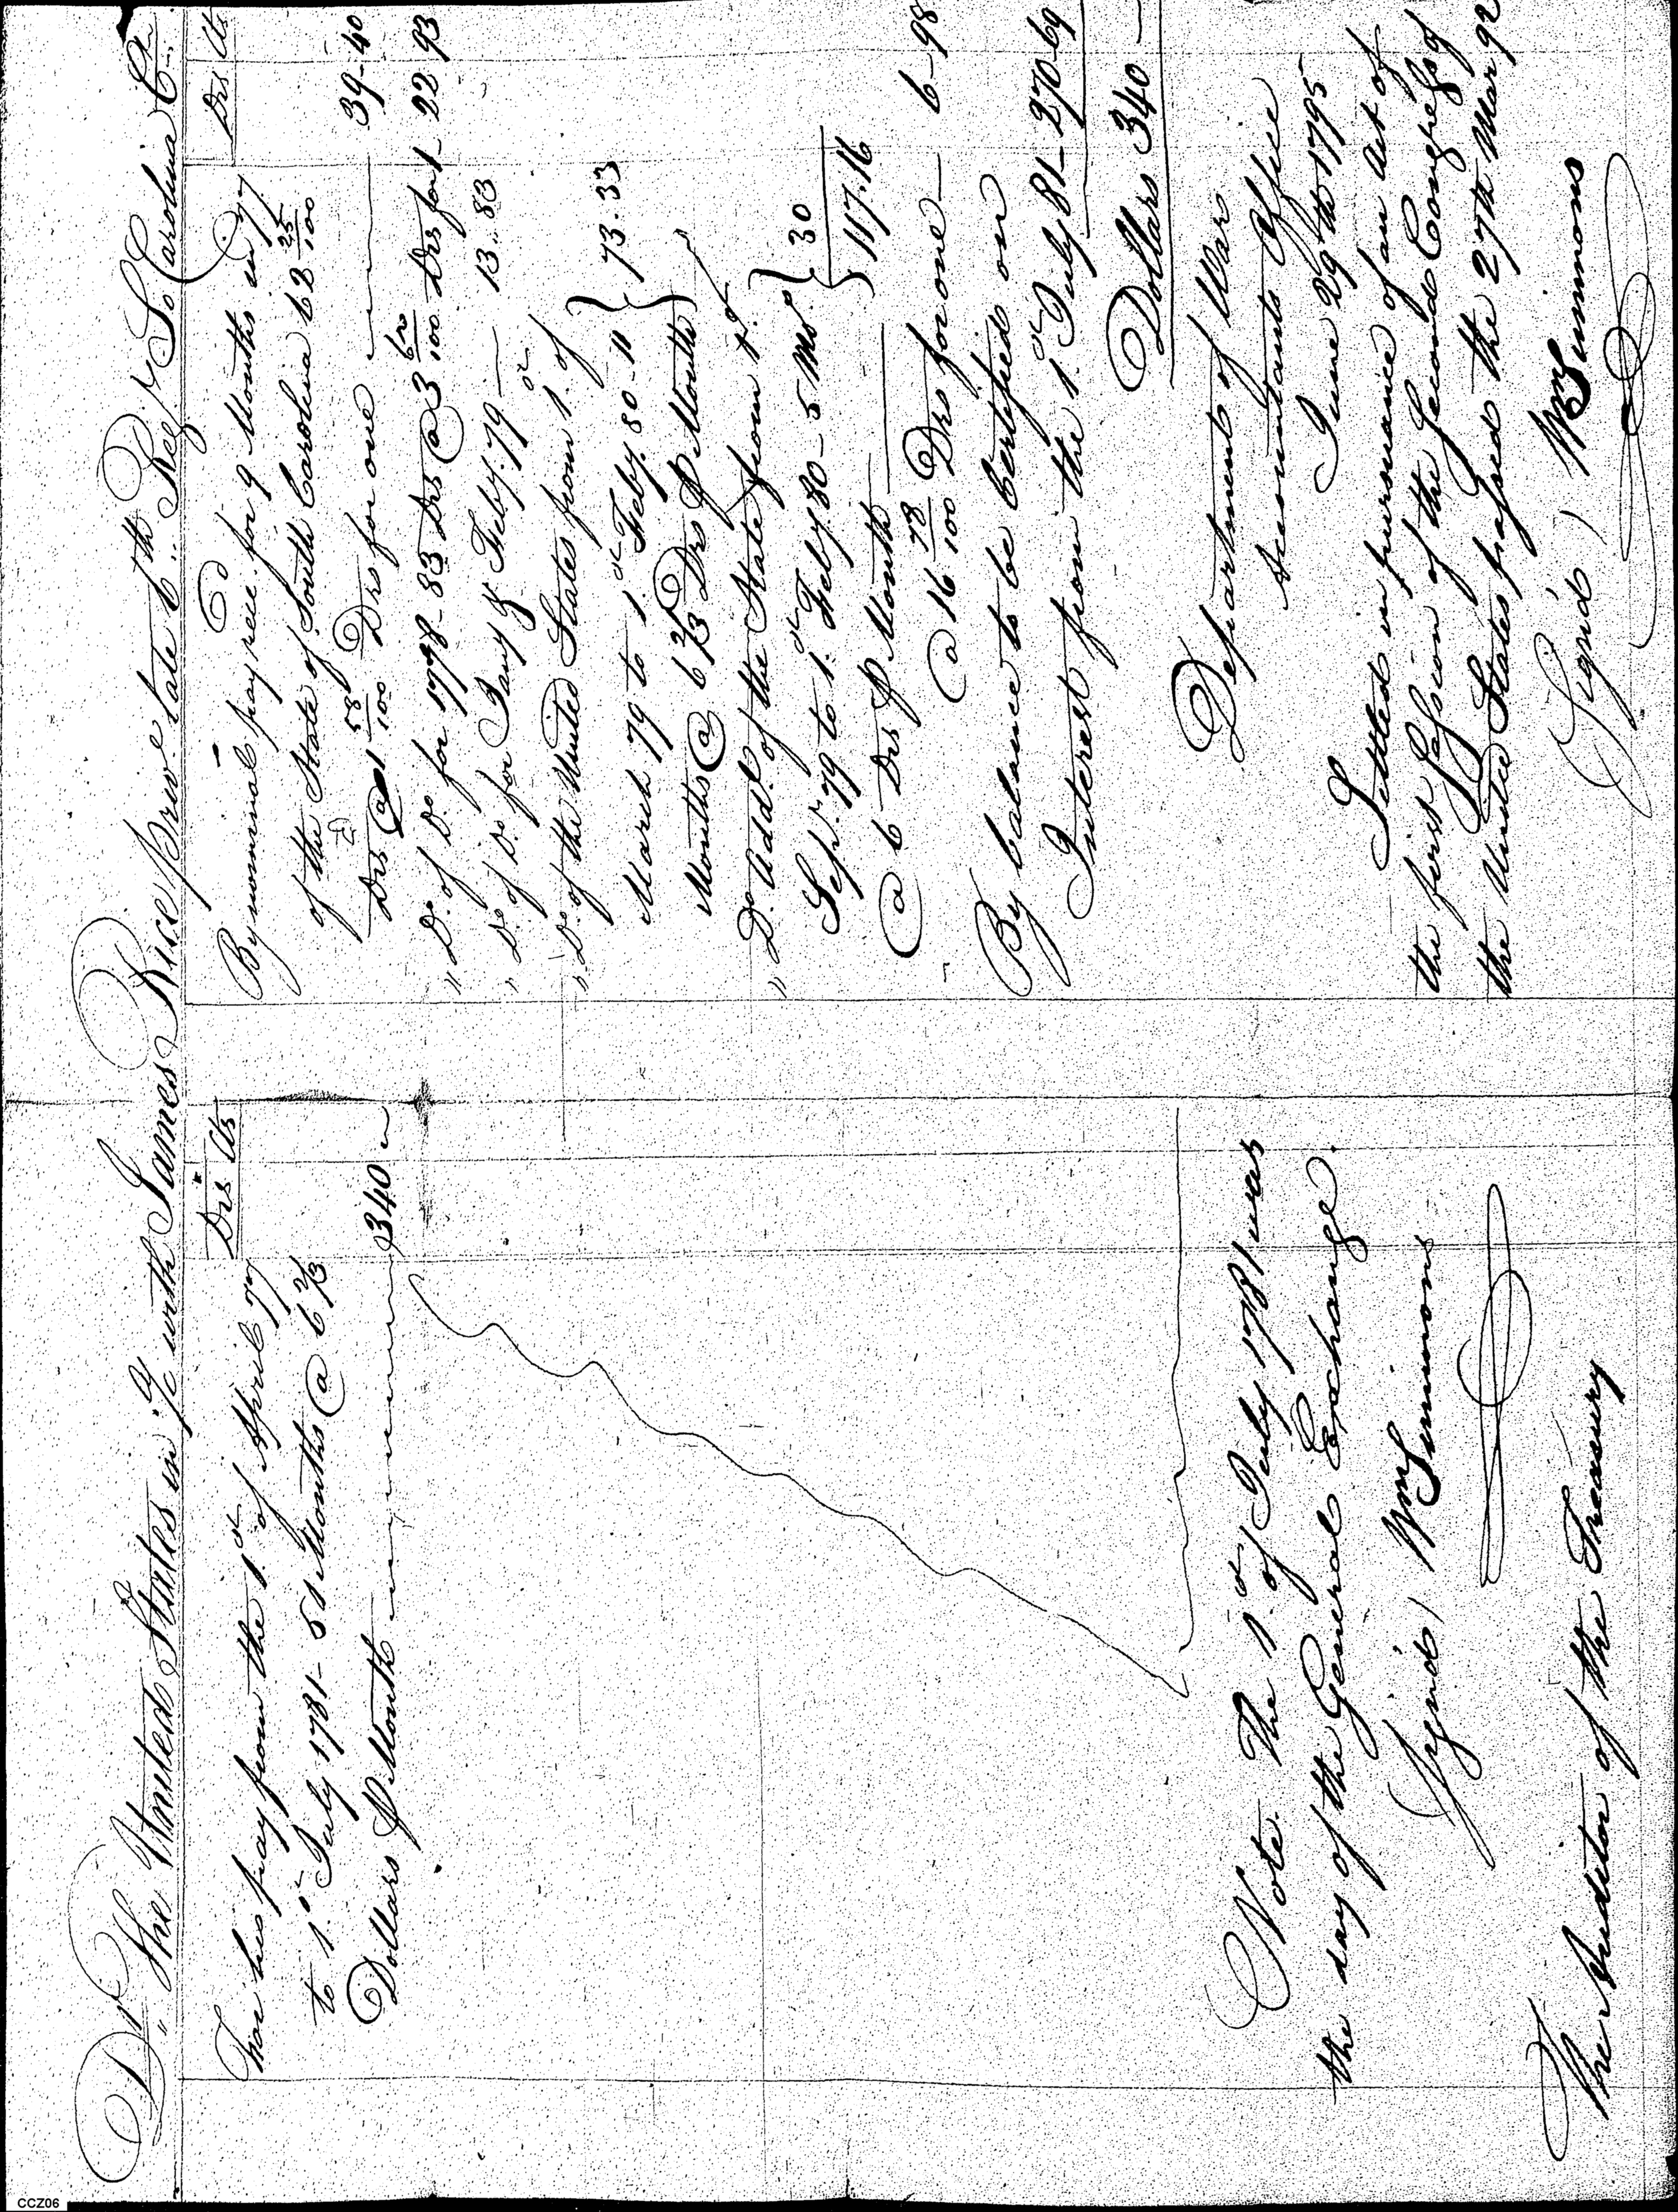 Dr. The United States in a/c with James Rice priv.e late 6th Reg.t So Carolina Cr.
Drs Cts
For his pay from the 1.st of April 77
to 1.st July 1781 - 51 Months @ 6 2/3
Dollars P Month 340
Note. The 1.st of July 1781 was
the day of the General Exchange.
Sign'd) Wm Simmons
The Auditor of the Treasury
Drs Cts
By nominal pay rece.d for 9 Months in 77
of the State of South Carolina 62 25/100
Drs @ 1 58/100 Drs for one 39-40
" D.o of D.o for 1778 - 83 Drs @ 3 62/100 Drs for 1 - 22 93
" D.o of D.o for Jany & Feby. 79 — 13.83
" D.o of the United States from 1.st of
March 79 to 1.st Feby. 80 - 11 } 73.33
Months @ 6 2/3 Drs P Month
" D.o Add.l of the State from 1.st
Sep.r 79 to 1.st Feby 80 - 5 Mo.s } 30
@ 6 Drs P Month — 117.16
@ 16 78/100 Drs for one — 6-98
By balance to be Certified on
Interest from the 1.st July 81 - 270-69
Dollars 340 —
Department of War
Accountants Office
June 29th 1795
Settled in pursuance of an Act of
the first Session of the Second Congress of
the United States passed the 27th Mar 92
Signd) Wm Simmons
CCZ06